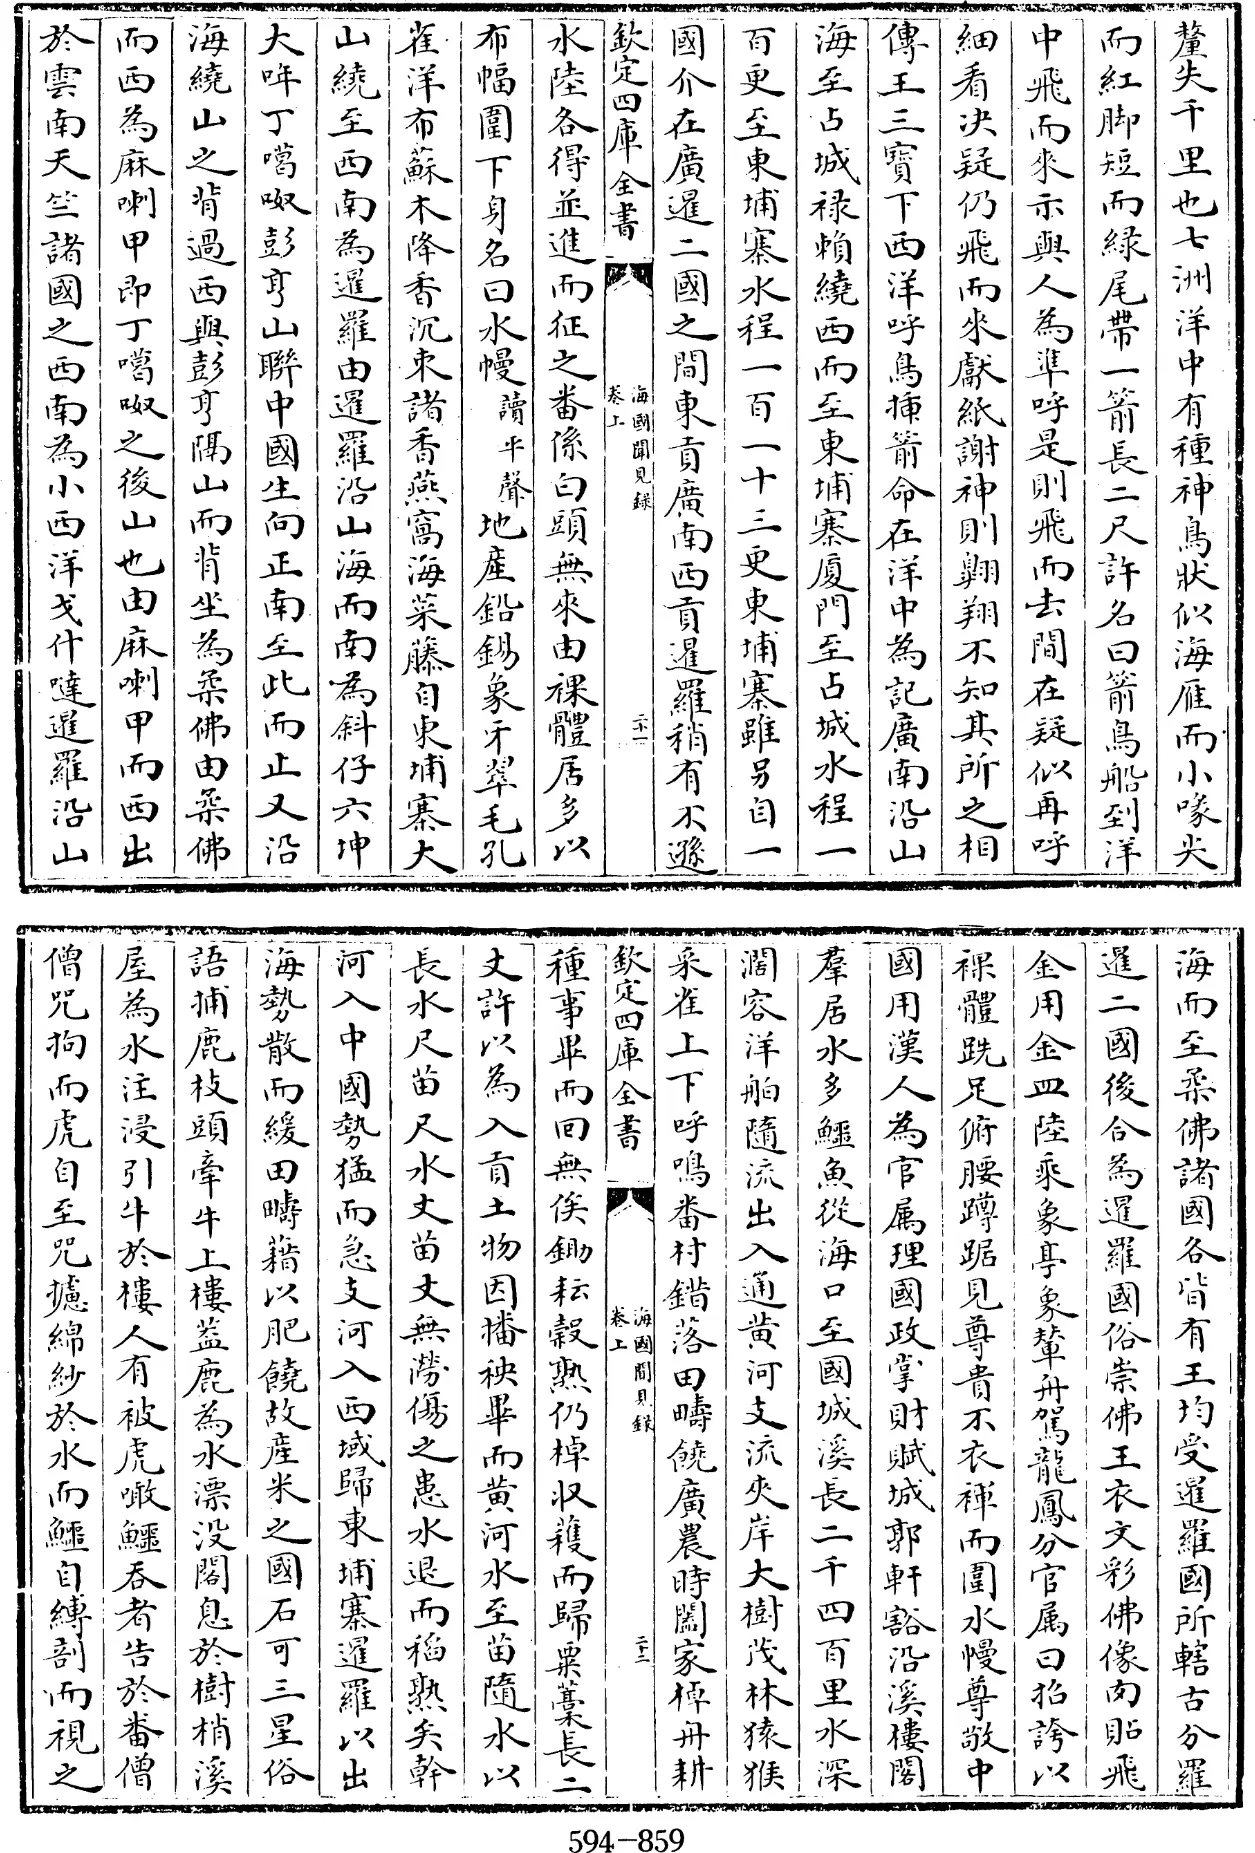 釐失千里也七洲洋中有種神鳥狀似海雁而小喙尖
而紅脚短而綠尾帶一箭長二尺許名曰箭鳥船到洋
中飛而來示與人為準呼是則飛而去間在疑似再呼
細看决疑仍飛而來獻紙謝神則翺翔不知其所之相
傳王三寶下西洋呼鳥揷箭命在洋中為記廣南沿山
海至占城祿賴繞西而至東埔寨廈門至占城水程一
百更至東埔寨水程一百一十三更東埔寨雖另自一
國介在廣暹二國之間東貢廣南西貢暹羅稍有不遜
欽定四庫全書
海國聞見錄
卷上
二十一
水陸各得並進而征之番係白頭無來由裸體居多以
布幅圍下身名曰水幔讀平聲地產鉛錫象牙翠毛孔
雀洋布蘇木降香沉束諸香燕窩海菜藤自東埔寨大
山繞至西南為暹羅由暹羅沿山海而南為斜仔六坤
大哖丁噶呶彭亨山聯中國生向正南至此而止又沿
海繞山之背過西與彭亨隔山而背坐為柔佛由柔佛
而西為麻喇甲即丁噶呶之後山也由麻喇甲而西出
於雲南天竺諸國之西南為小西洋戈什噠暹羅沿山
海而至柔佛諸國各皆有王均受暹羅國所轄古分羅
暹二國後合為暹羅國俗崇佛王衣文彩佛像肉貼飛
金用金皿陸乘象亭象輦舟駕龍鳳分官屬曰招誇以
裸體跣足俯腰蹲踞見尊貴不衣褌而圍水幔尊敬中
國用漢人為官屬理國政掌財賦城郭軒豁沿溪樓閣
羣居水多鱷魚從海口至國城溪長二千四百里水深
濶容洋舶隨流出入通黃河支流夾岸大樹茂林猿猴
采雀上下呼鳴番村錯落田疇饒廣農時闔家棹舟耕
欽定四庫全書
海國聞見錄
卷上
二十二
種事畢而回無俟鋤耘穀熟仍棹収穫而歸粟藁長二
丈許以為入貢土物因播秧畢而黃河水至苗隨水以
長水尺苗尺水丈苗丈無澇傷之患水退而稻熟矣幹
河入中國勢猛而急支河入西域歸東埔寨暹羅以出
海勢散而緩田疇藉以肥饒故產米之國石可三星俗
語捕鹿枝頭牽牛上樓葢鹿為水漂沒閣息於樹梢溪
屋為水注浸引牛於樓人有被虎噉鱷吞者告於番僧
僧咒拘而虎自至咒攄綿紗於水而鱷自縛剖而視之
594-859